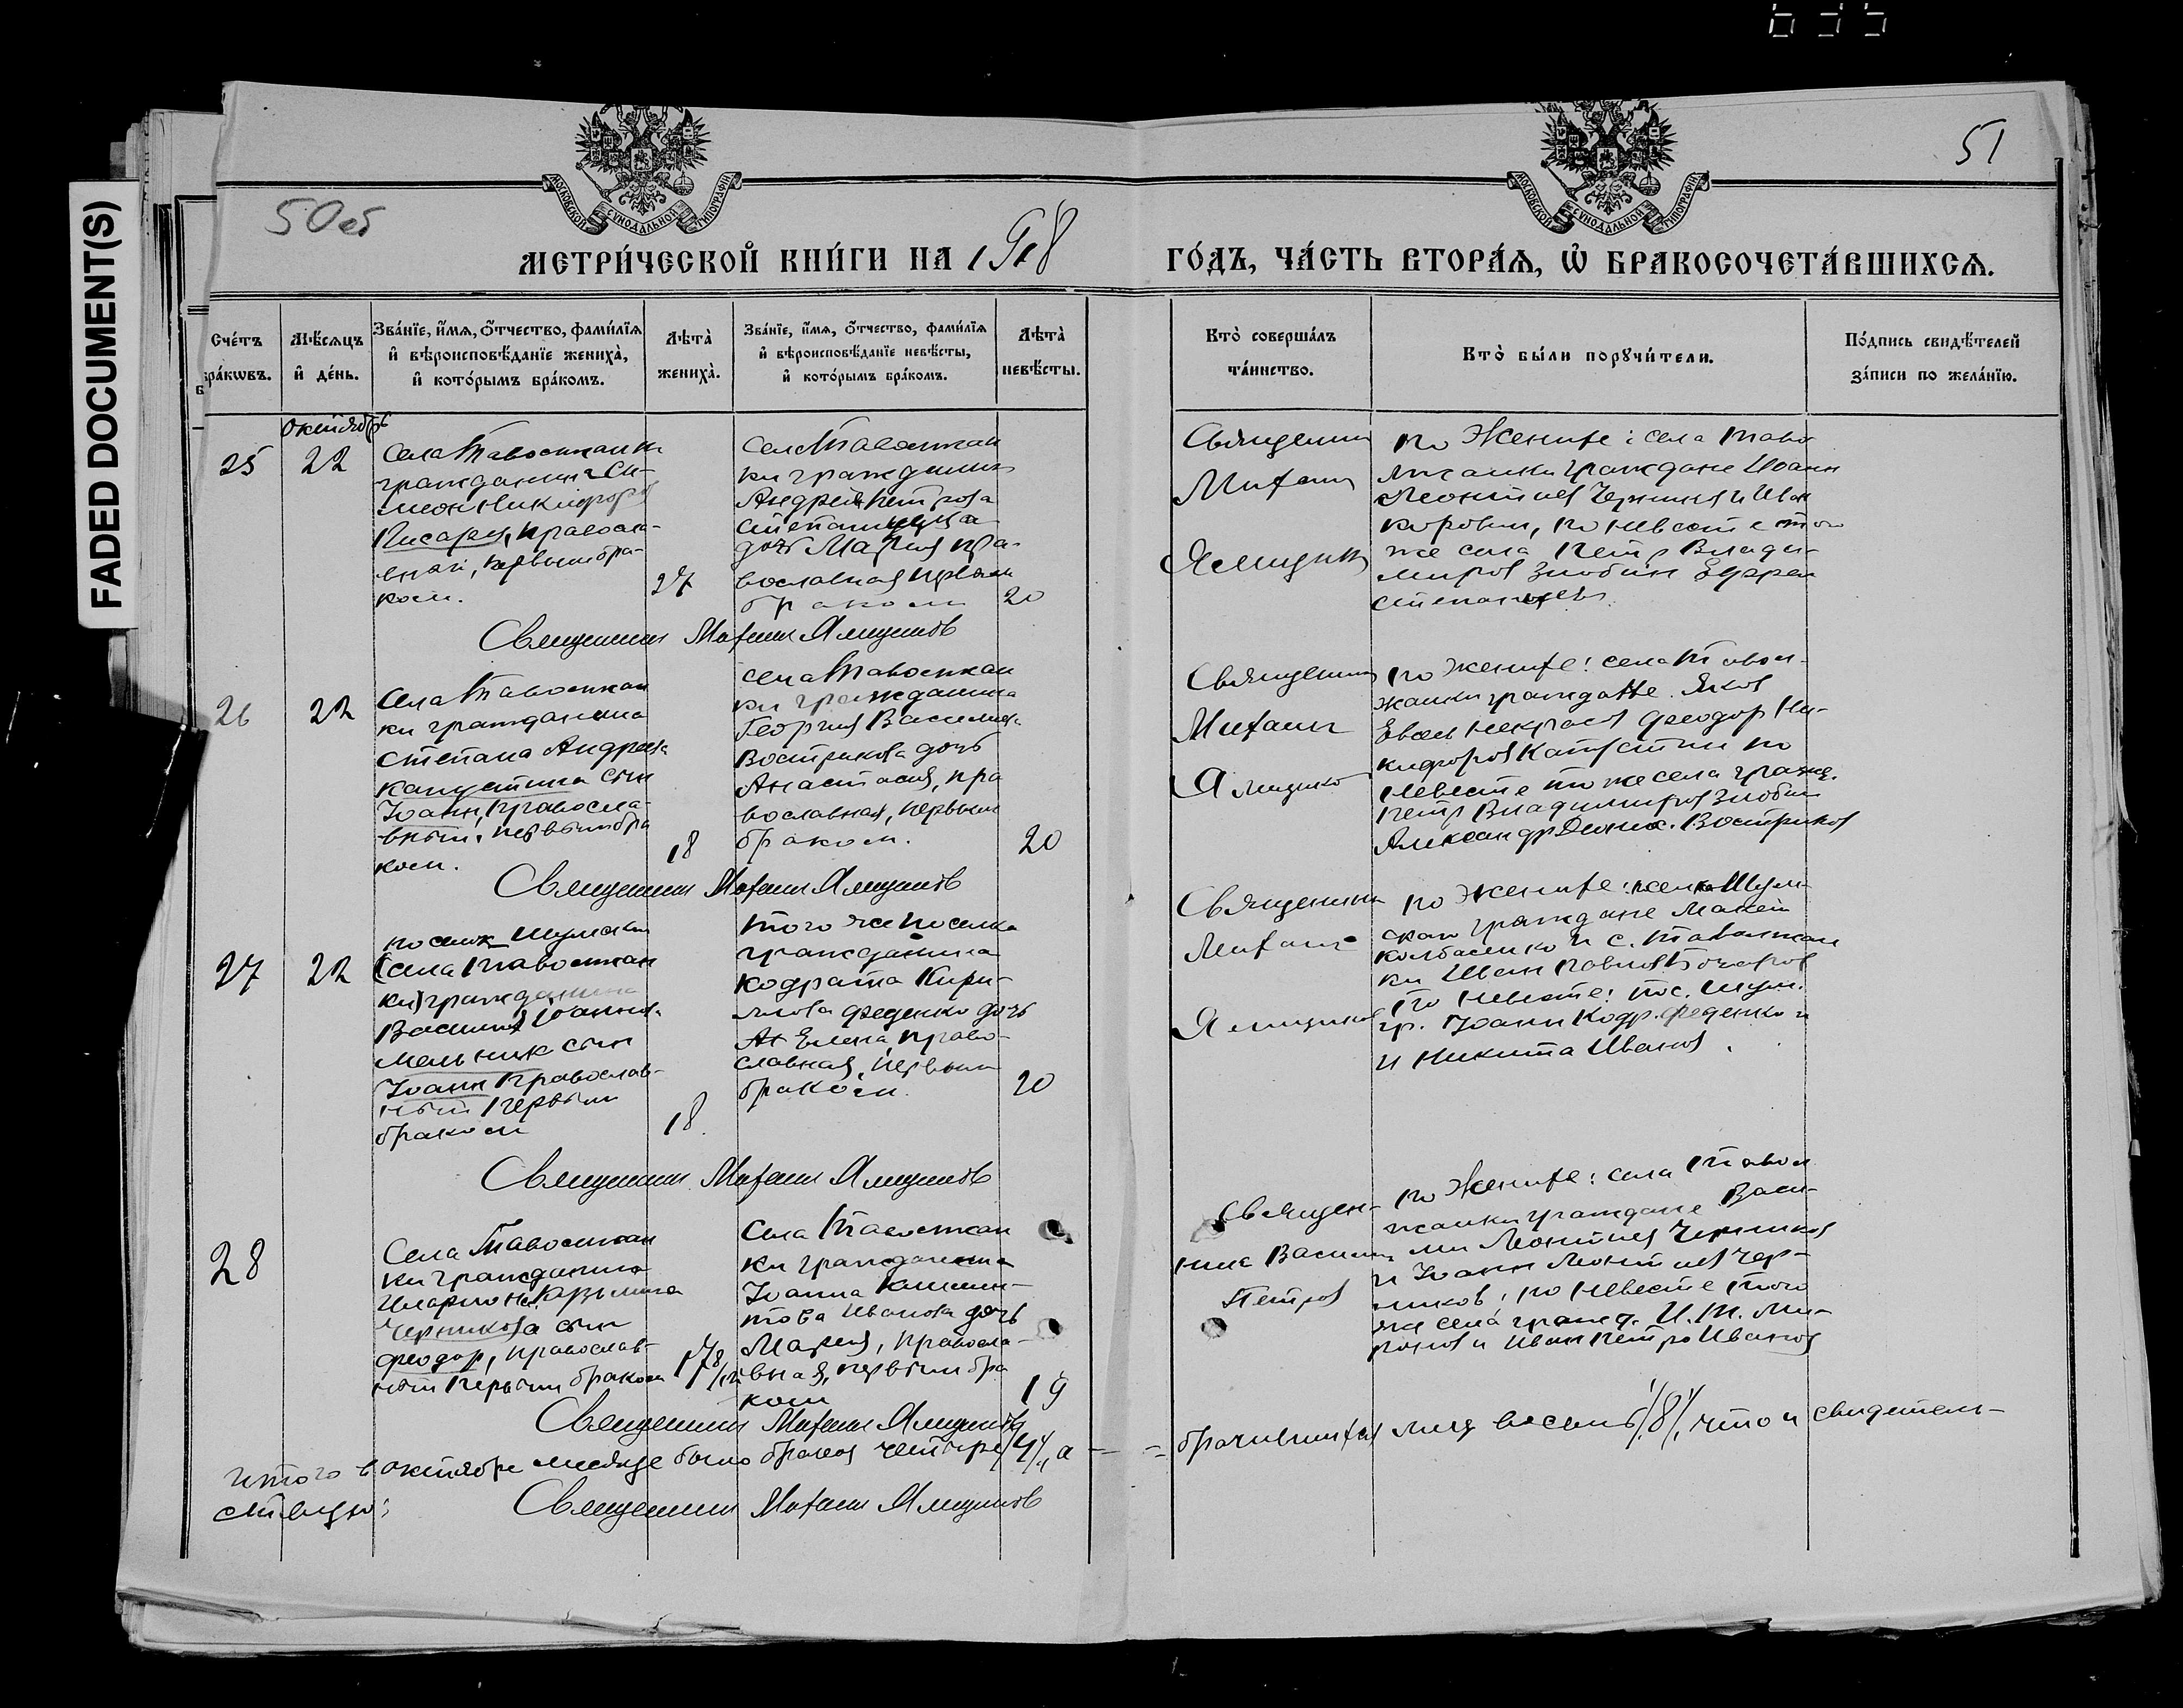 FADED DOCUMENT(S)
50об
51
МОСКОВСКОЙ СѴНОДАЛЬНОЙ ТИПОГРАФІИ
МОСКОВСКОЙ СѴНОДАЛЬНОЙ ТИПОГРАФІИ
МЕТРИ́ЧЕСКОЙ КНИ́ГИ НА 1918
ГО́ДЪ, ЧА́СТЬ ВТОРА́Ѧ, Ѡ БРАКОСОЧЕТА́ВШИХСѦ.
Сче́тъ бра́кѡвъ.
Мѣ́сяцъ и де́нь.
Зва́нїе, и́мѧ, о́тчество, фами́лїѧ и вѣроисповѣ́данїе жениха̀, и кото́рымъ бра́комъ.
Лѣта̀ жениха̀.
Зва́нїе, и́мѧ, о́тчество, фами́лїѧ и вѣроисповѣ́данїе невѣ́сты, и кото́рымъ бра́комъ.
Лѣта̀ невѣ́сты.
Кто̀ соверша́лъ та́инство.
Кто̀ бы́ли порꙋчи́тели.
По́дпись свидѣ́телей за́писи по жела́нїю.
Октябрь
25
22
Села Таволжанки
гражданин Си-
меон Никифоров
Писарев, правосла-
вный, первым бра-
ком.
27
Села Таволжан
ки гражданина
Андрея Петрова
дочь Мария пра-
вославная первым
браком
20
Священник
Митаил
Ямщиков
По Женихе: села Таво
лжанки граждане Иоанн
Леонтиев Черников и Иван
по невесте того
же села Петр Влади-
миров Злобин
Священник Михаил Ямщиков
26
22
Села Таволжан
ки гражданина
Степана Андреева
Капустина сын
Иоанн, Правосла-
вный, первым бра
ком.
18
Села Таволжан
ки гражданина
Георгия Васильева
Вострикова дочь
Анастасия, пра
вославная, первым
браком.
20
Священник
Михаил
Ямщиков
По женихе: села Тавол-
жанки граждане. Яков
Некрасов Феодор Ни-
кифоров Капустин по
Невесте то же села гражд.
Петр Владимиров Злобин
Александр Востриков
Священник Михаил Ямщиков
27
22
(села Таволжан
ки) гражданина
Василия Иоаннов.
Мельник сын
Иоанн Православ-
ный Первым
браком
18.
того же поселка
гражданина
Кодрата Кири-
лова Феденко дочь
Елена, право-
славная, первым
браком.
20
Священник
Михаил
Ямщиков
по Женихе:
граждане
и с. Таволжан
ки Иван
По Невесте: пос.
гр. Иоанн Кодр. Феденко и
и Никита Иванов.
Священник Михаил Ямщиков
28
Села Таволжан
ки гражданина
Илариона
Черникова сын
Феодор, православ-
ный Первым браком
Села Таволжан
ки гражданина
Иоанна Климен-
това Иванова дочь
Мария, правосла-
вная, первым бра
ком
19
Священ-
ник Василий
Петров
По Женихе: села Тавол
жанки граждане Васи-
лий Леонтиев Черников
и Иоанн Леонтиев Чер-
ников, по Невесте того
же села гражд. И. Т. Ми-
ронов и Иван Петр. Иванов
Священник Михаил Ямщиков
Итого в октябре месяце было браков четыре /4/, а —
= брачившихся лиц восемь /8/, что и свидетель-
ствую:
Священник Михаил Ямщиков